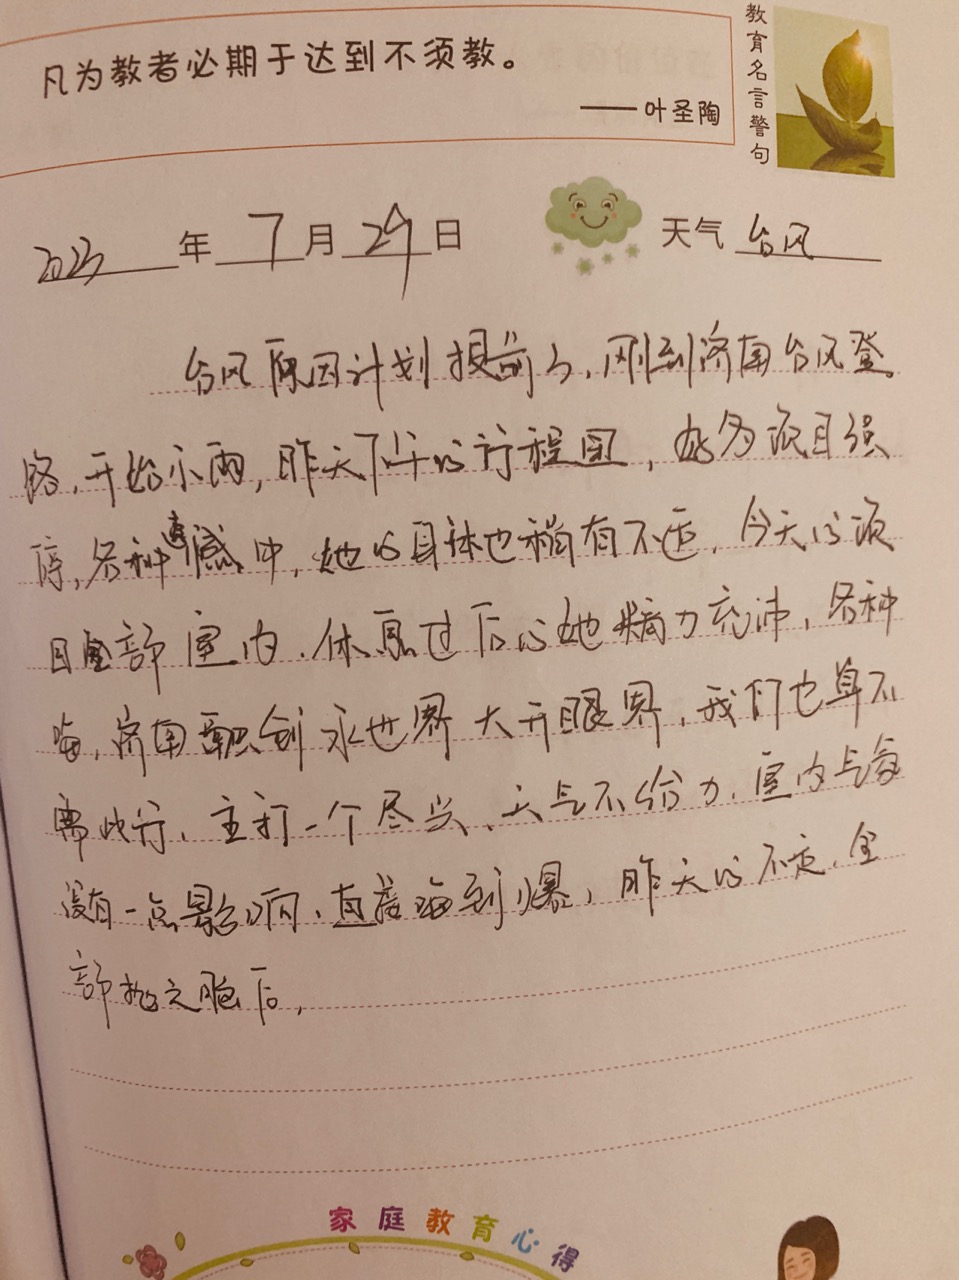 凡为教者必期于达到不须教。
——叶圣陶
教育名言警句
2023年7月29日 天气 台风
台风原因计划提前了,刚到济南台风登
路,开始小雨,昨天下午的行程因,好多项目强
度,各种 感冲,她的身体也稍有不适,今天的项
目全部室内,休息过后的她精力充沛,各种
嗨,济南融创水世界大开眼界,我们也算不
虚此行,主打一个尽兴,天气不给力,室内气氛
没有一点影响,直接嗨到爆,昨天的不适,全
部抛之脑后,
家庭教育心得